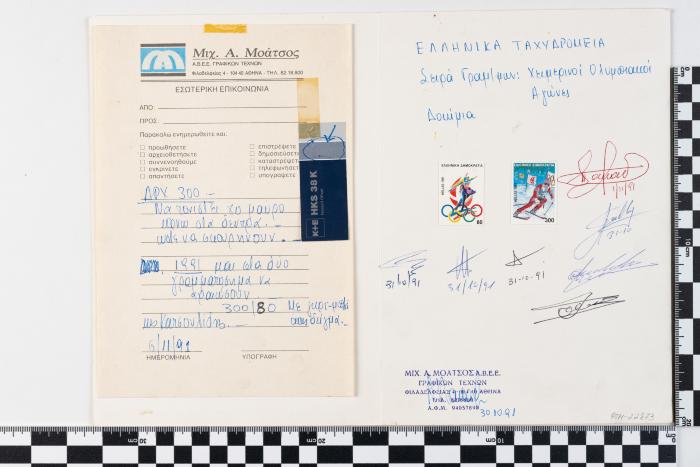 Μιχ. Α. Μοάτσος
Α.Β.Ε.Ε. ΓΡΑΦΙΚΩΝ ΤΕΧΝΩΝ
Φιλαδελφείας 4 - 104 40 ΑΘΗΝΑ - ΤΗΛ. 82.18.800
ΕΣΩΤΕΡΙΚΗ ΕΠΙΚΟΙΝΩΝΙΑ
ΑΠΟ:
ΠΡΟΣ:
Παρακαλώ ενημερωθείτε και:
προωθήσετε
αρχειοθετήσετε
συννενοηθούμε
εγκρίνετε
απαντήσετε
επιστρέψετε
δημοσιεύσετε
καταστρέψετε
τηλεφωνήσετε
υπογράψετε
K+E HKS 38 K
ΔΡΧ 300 -
Να τονιστεί το μαύρο
πάνω στα δέντρα
1991 και στα δύο
γραμματόσημα να
300/80
6/11/91
ΗΜΕΡΟΜΗΝΙΑ
ΥΠΟΓΡΑΦΗ
ΕΛΛΗΝΙΚΑ ΤΑΧΥΔΡΟΜΕΙΑ
Σειρά Γραμ/μων: Χειμερινοί Ολυμπιακοί
Αγώνες
Δοκίμια
ΕΛΛΗΝΙΚΗ ΔΗΜΟΚΡΑΤΙΑ
80
ΕΛΛΗΝΙΚΗ ΔΗΜΟΚΡΑΤΙΑ
300
1/11/91
31-10
31/10/91
31/10/91
31-10-91
ΜΙΧ. Α. ΜΟΑΤΣΟΣ Α.Β.Ε.Ε.
ΓΡΑΦΙΚΩΝ ΤΕΧΝΩΝ
ΦΙΛΑΔΕΛΦΕΙΑΣ 4 104 40 ΑΘΗΝΑ
Α.Φ.Μ. 94057898
30.10.91
10 cm
20
30